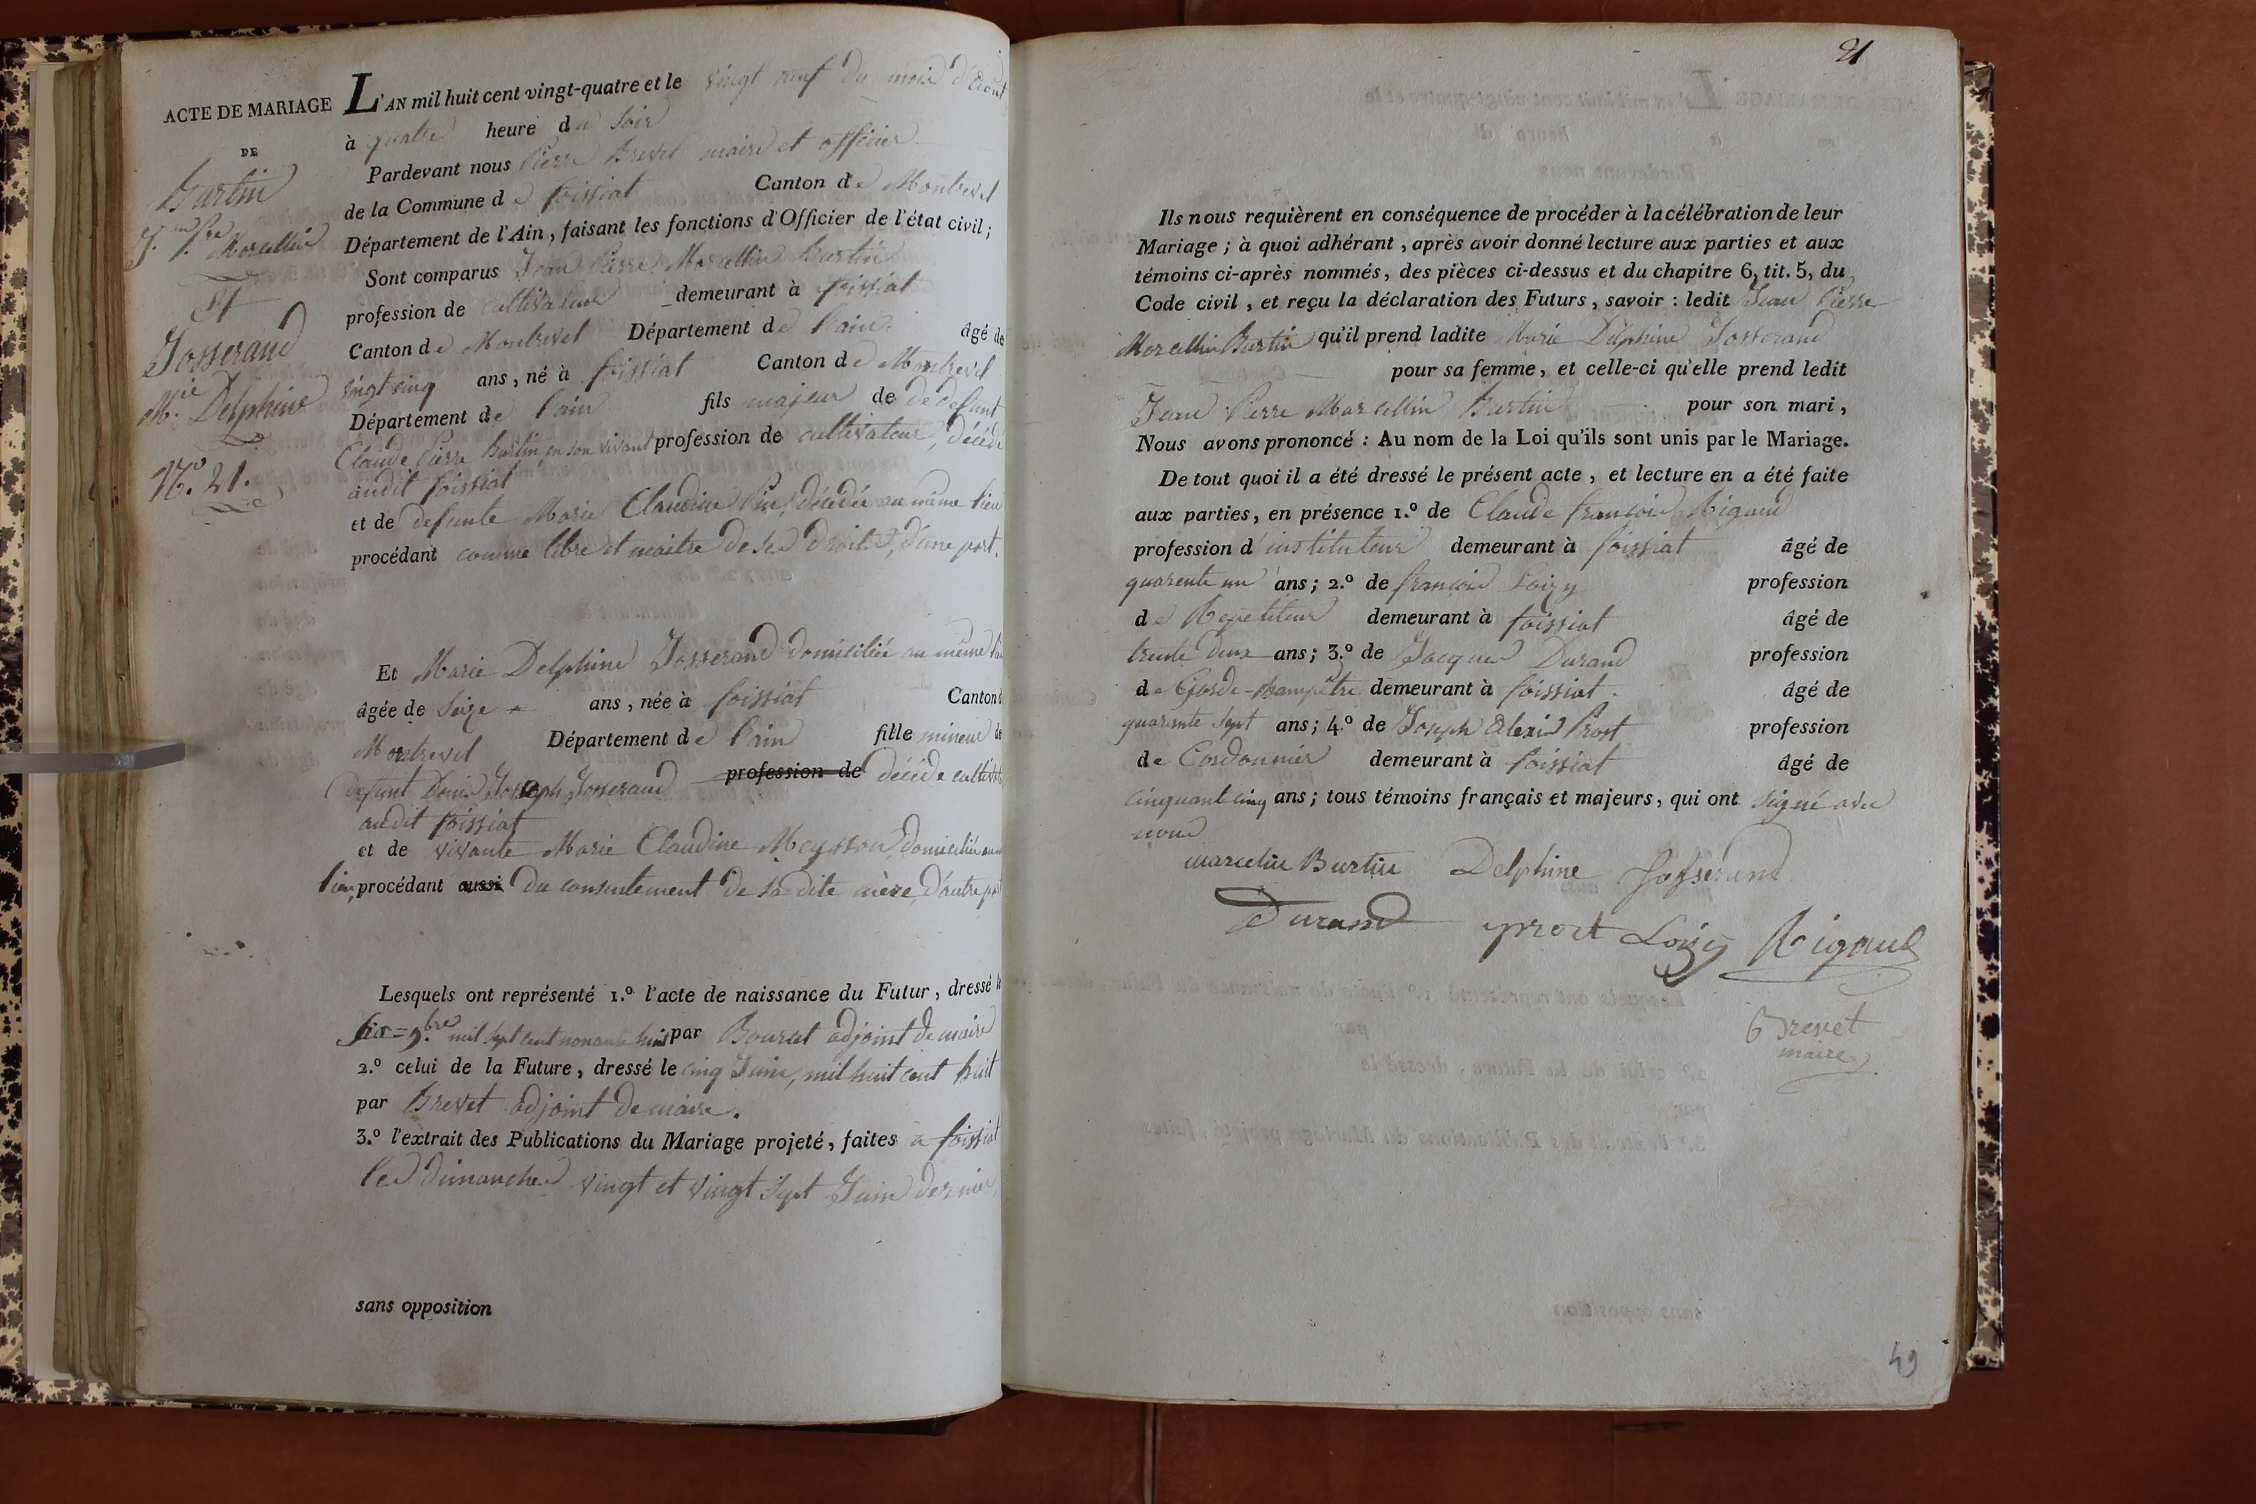 ACTE DE MARIAGE
DE
Burtin
J.n P.re Marcellin
Et
Josserand
M.ie Delphine
N.o 21.
L'AN mil huit cent vingt-quatre et le vingt neuf du mois d'août
à quatre heure du soir
Pardevant nous Pierre Brevet maire et officier
de la Commune de foissiat Canton de Montrevel
Département de l'Ain, faisant les fonctions d'Officier de l'état civil;
Sont comparus Jean Pierre Marcellin Burtin
profession de cultivateur demeurant à foissiat
Canton de Montrevel Département de l'ain. âgé de
vingt cinq ans, né à foissiat Canton de Montrevel
Département de l'ain fils majeur de de defunt
Claude Pierre Burtin en son vivant profession de cultivateur, décédé
audit foissiat
et de defunte Marie Claudine décédée au même lieu
procédant comme libre et maitre de ses droits, d'une part.
Et Marie Delphine Josserand domiciliée au même
âgée de seize ans, née à foissiat Canton
Montrevel Département de l'ain fille mineur de
defunt Denis Joseph Josserand profession de décédé
audit foissiat
et de vivante Marie Claudine Meysson, domiciliée
lieu, procédant aussi du consentement de sa dite mère, d'autre part
Lesquels ont représenté 1.o l'acte de naissance du Futur, dressé le
six = 9.bre mil sept cent nonante huit par Bourcet adjoint de maire
2.o celui de la Future, dressé le cinq Juin, mil huit cent huit
par Brevet adjoint de maire.
3.o l'extrait des Publications du Mariage projeté, faites a foissiat
les dimanches vingt et vingt sept Juin dernier
sans opposition
21
Ils nous requièrent en conséquence de procéder à la célébration de leur
Mariage; à quoi adhérant, après avoir donné lecture aux parties et aux
témoins ci-après nommés, des pièces ci-dessus et du chapitre 6, tit. 5, du
Code civil, et reçu la déclaration des Futurs, savoir: ledit Jean Pierre
Marcellin Burtin qu'il prend ladite Marie Delphine Josserand
pour sa femme, et celle-ci qu'elle prend ledit
Jean Pierre Marcellin Burtin pour son mari,
Nous avons prononcé: Au nom de la Loi qu'ils sont unis par le Mariage.
De tout quoi il a été dressé le présent acte, et lecture en a été faite
aux parties, en présence 1.o de Claude françois Rigaud
profession d'instituteur demeurant à foissiat âgé de
quarente un ans; 2.o de françois Loizy profession
de Repetiteur demeurant à foissiat âgé de
trente deux ans; 3.o de Jacques Durand profession
de Garde-champêtre demeurant à foissiat. âgé de
quarente sept ans; 4.o de Joseph Alexis Prost profession
de Cordonnier demeurant à foissiat âgé de
cinquant cinq ans; tous témoins français et majeurs, qui ont signé avec
nous
marcelin Burtin Delphine Josserand
Durand prost Loizy Rigaud
Brevet
maire
49